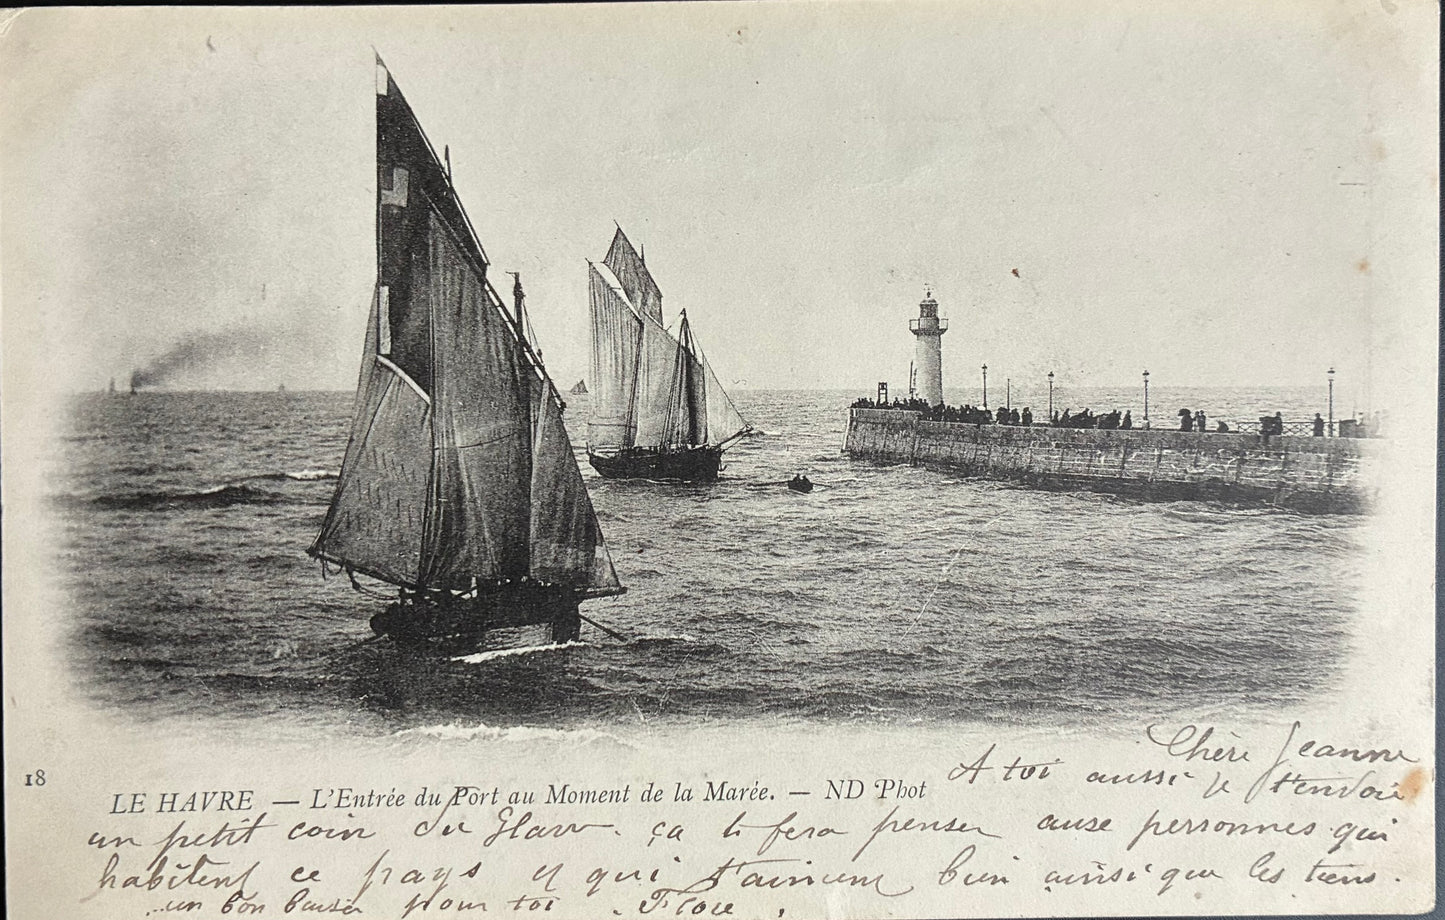 18
LE HAVRE — L'Entrée du Port au Moment de la Marée. — ND Phot
Chère Jeanne
A toi aussi je t'envoie
un petit coin du Havre. ça te fera penser aux personnes qui
habitent ce pays et qui t'aiment bien ainsi que les tiens.
un bon baiser pour toi.